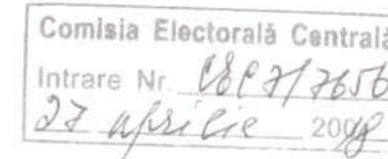 Comisia Electorală Centrală
Intrare Nr. CEC7/7656
27 aprilie 2018